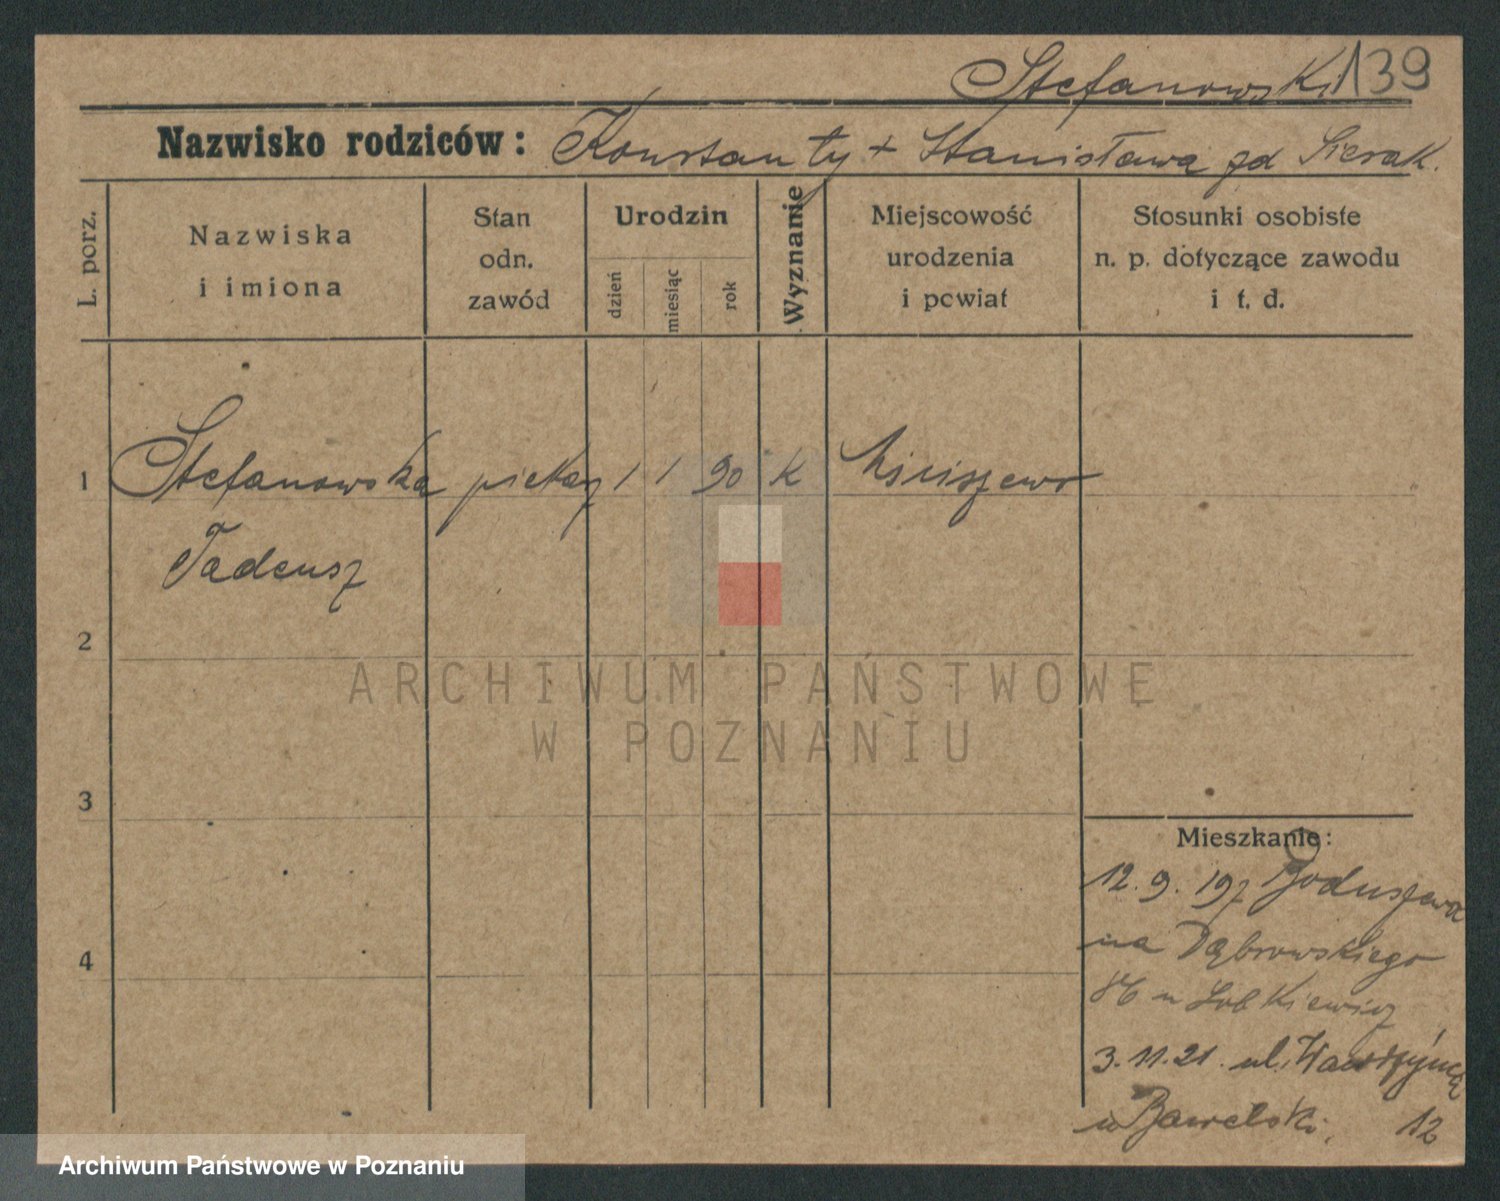 Stefanowski 139
Nazwisko rodziców: Konstanty + Stanisława zd Sierak.
L. porz.
Nazwiska
i imiona
Stan
odn.
zawód
Urodzin
dzień
miesiąc
rok
Wyznanie
Miejscowość
urodzenia
i powiat
Stosunki osobiste
n. p. dotyczące zawodu
i t. d.
1 Stefanowska piekarz 1 1 90 K
Tadeusz
2
ARCHIWUM PAŃSTWOWE
W POZNANIU
3
4
Mieszkanie:
12. 9. 19
na Dąbrowskiego
u
3. 11. 21. ul. Wawrzyńca
u 12
Archiwum Państwowe w Poznaniu